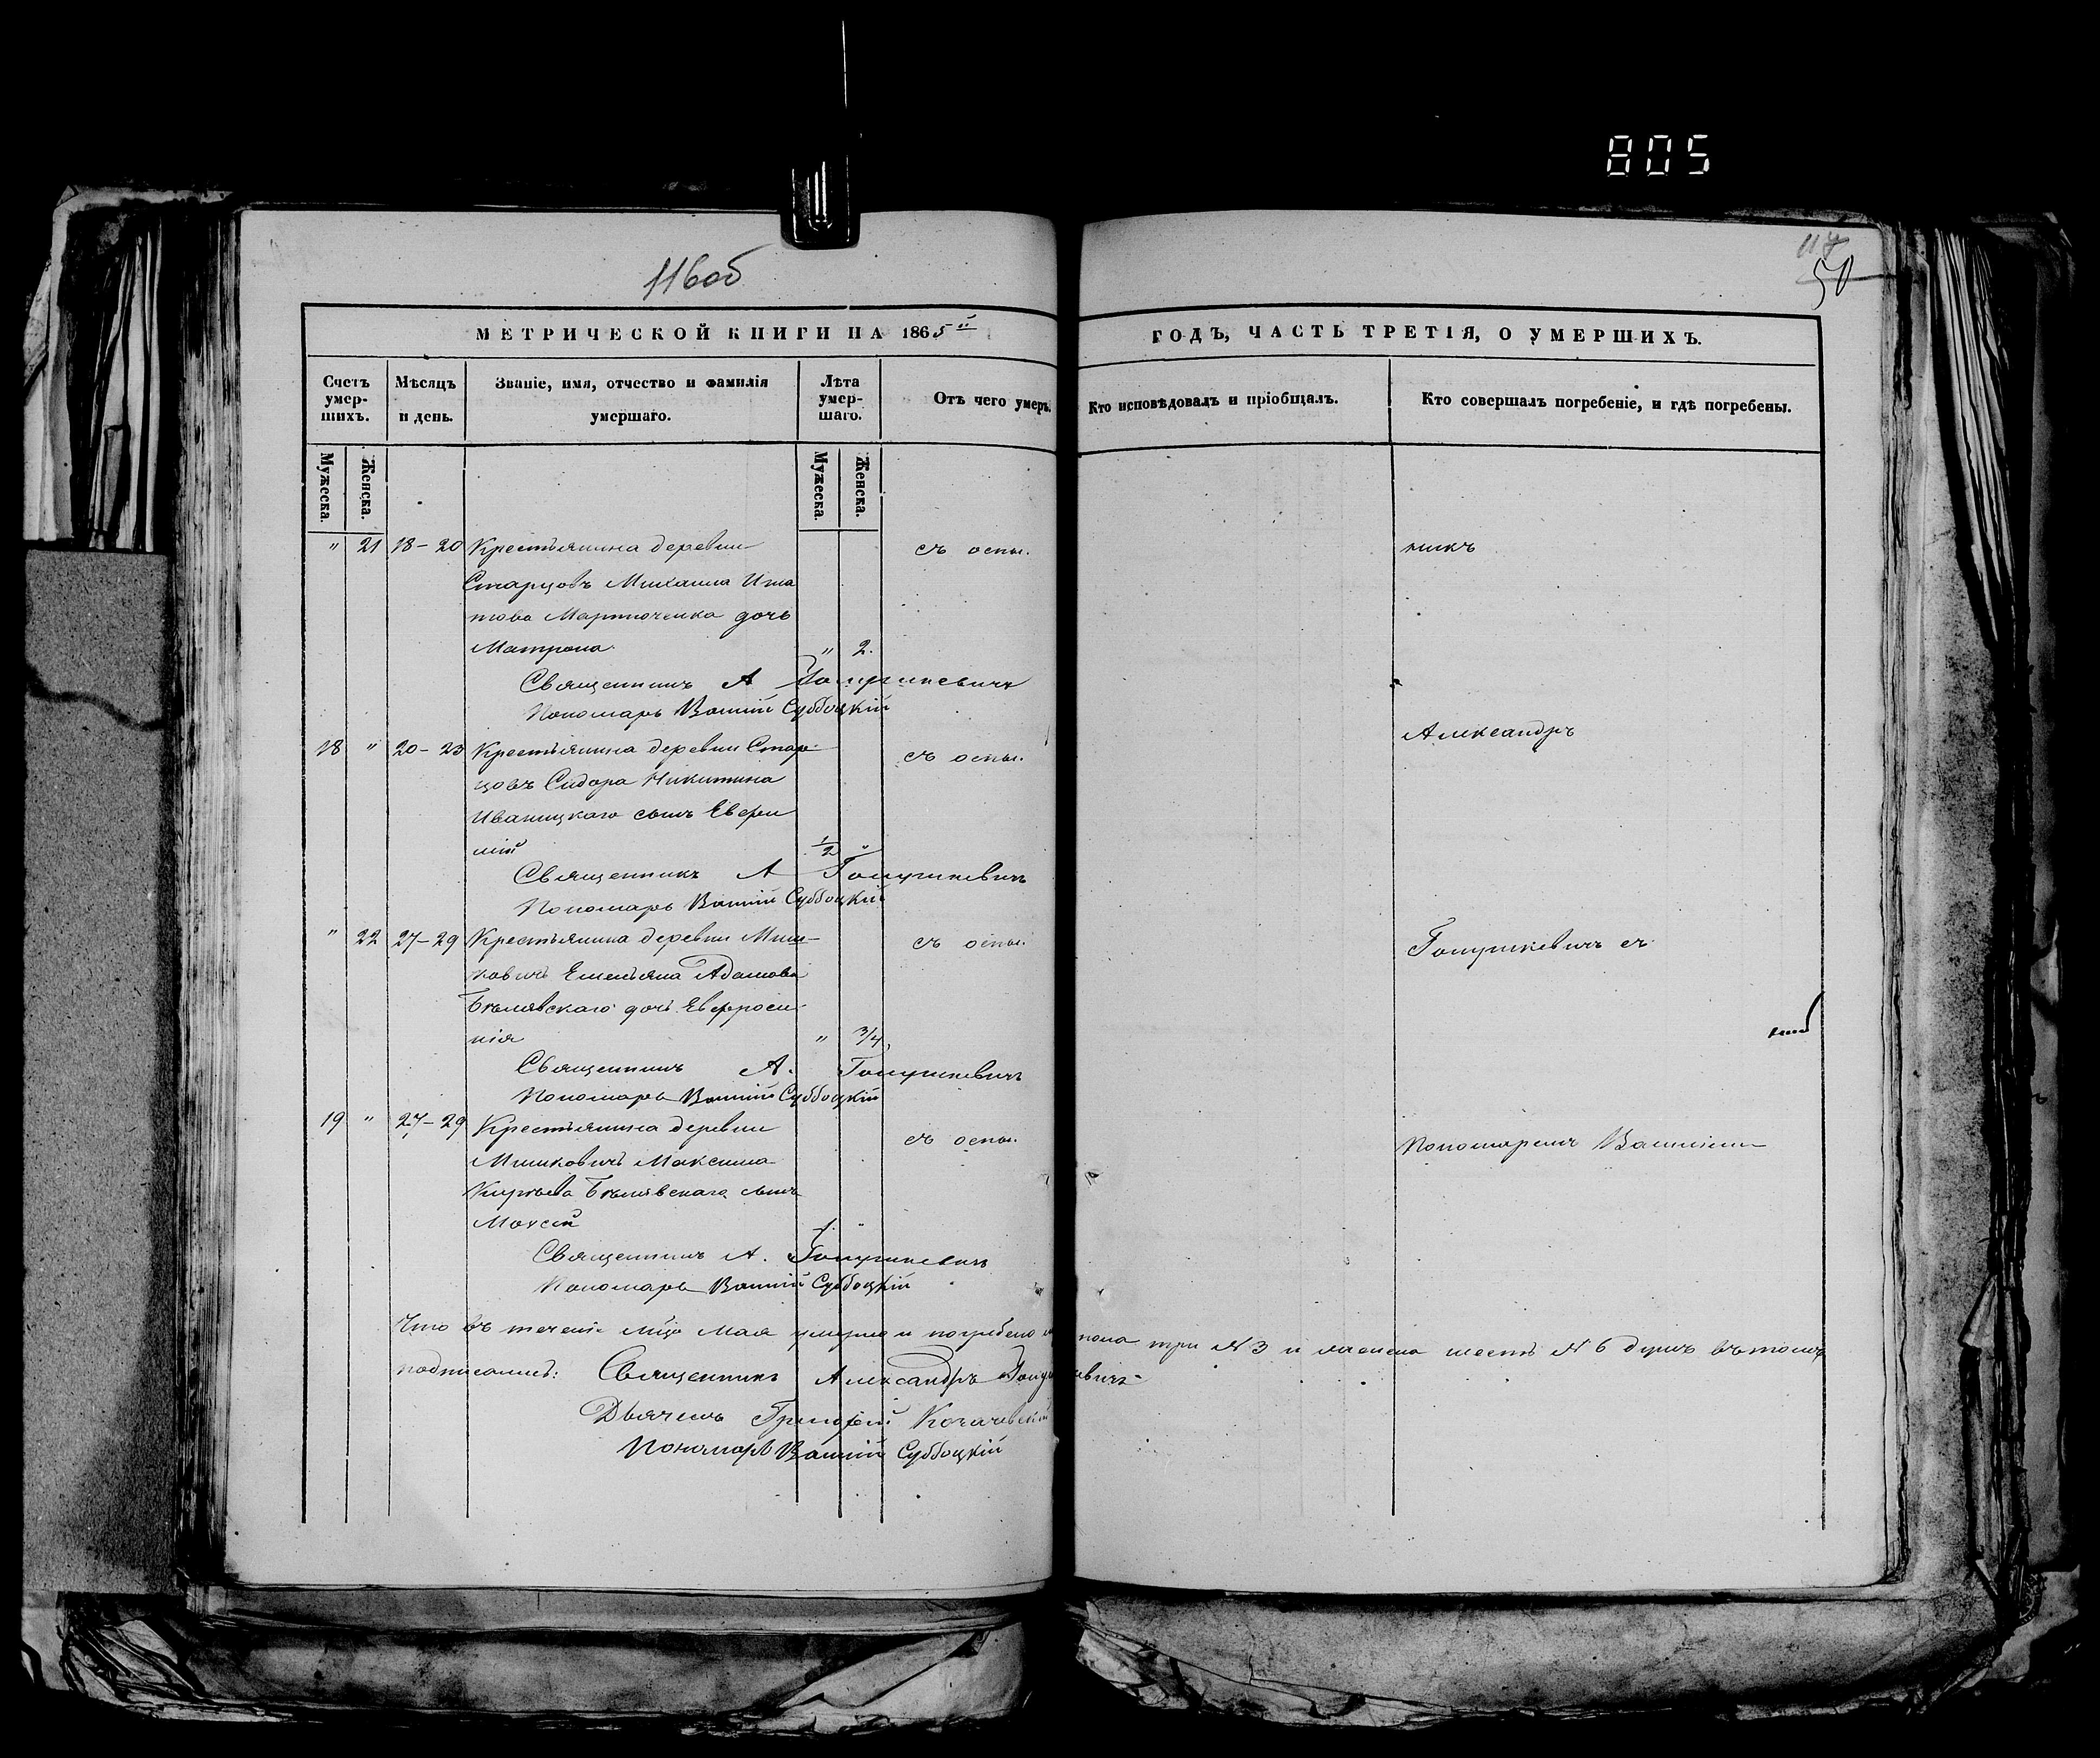 805
116об
117
50
МЕТРИЧЕСКОЙ КНИГИ НА 1865й ГОДЪ, ЧАСТЬ ТРЕТІЯ, О УМЕРШИХЪ.
Счетъ умер-шихъ.
Мѣсяцъ и день.
Званіе, имя, отчество и фамилія умершаго.
Лѣта умер-шаго.
Отъ чего умеръ.
Кто исповѣдовалъ и пріобщалъ.
Кто совершалъ погребеніе, и гдѣ погребены.
Мужеска. Женска. Мужеска. Женска.
" 21 18-20 Крестьянина деревни съ оспы. никъ
Старцовъ Михаила Игна
това Мартюченка дочь
Матрона " 2.
Священникъ А Голушкевичъ
Пономарь Вассий Суббоцкій
Александръ
18 " 20-23 Крестьянина деревни Стар- съ оспы.
цовъ Сидора Никитина
Иваницкаго сынъ Евфи
мій 1/2 "
Священникъ А Голушкевичъ
Пономарь Вассий Суббоцкій
" 22 27-29 Крестьянина деревни Миш- съ оспы. Голушкевичъ съ
ковичъ Емельяна Адамова
Бѣлявскаго дочь Евфроси-
нія " 3/4
Священникъ А. Голушкевичъ
Пономарь Вассий Суббоцкій
19 " 27-29 Крестьянина деревни съ оспы. Пономаремъ
Мишковичъ Максима
Бѣлявскаго сынъ
1. "
Священникъ А. Голушкевичъ
Пономарь Вассий Суббоцкій
Что въ теченіе мѣсца Мая умерло и погребено м. пола три № 3 и женска шесть № 6 душъ въ томъ
подписались: Священникъ Александръ Голушкевичъ
Дьячекъ Григорій
Пономарь Вассий Суббоцкій